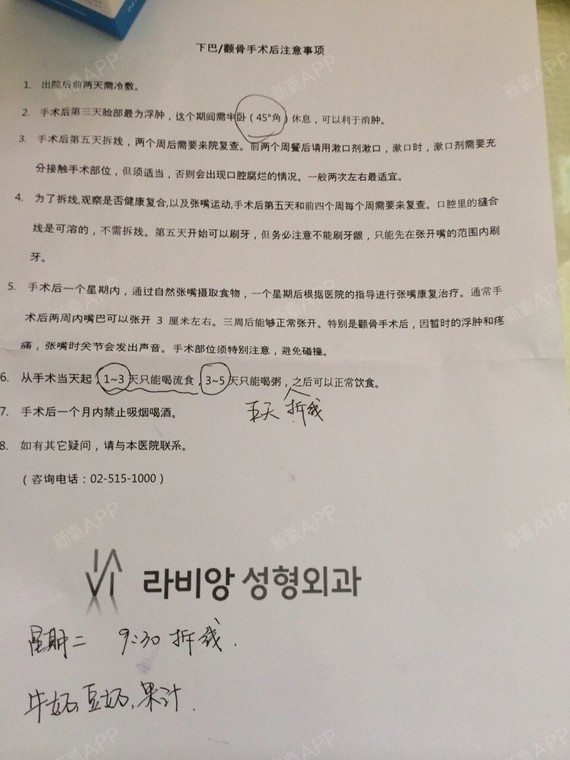 下巴/颧骨手术后注意事项
1. 出院后前两天需冷敷。
2. 手术后第三天脸部最为浮肿，这个期间需半卧（45°角）休息，可以利于消肿。
3. 手术后第五天拆线，两个周后需要来院复查。前两个周餐后请用漱口剂漱口，漱口时，漱口剂需要充
分接触手术部位，但须适当，否则会出现口腔腐烂的情况。一般两次左右最适宜。
4. 为了拆线,观察是否健康复合,以及张嘴运动,手术后第五天和前四个周每个周需要来复查。口腔里的缝合
线是可溶的，不需拆线。第五天开始可以刷牙，但务必注意不能刷牙龈，只能先在张开嘴的范围内刷
牙。
5. 手术后一个星期内，通过自然张嘴摄取食物，一个星期后根据医院的指导进行张嘴康复治疗。通常手
术后两周内嘴巴可以张开 3 厘米左右。三周后能够正常张开。特别是颧骨手术后，因暂时的浮肿和疼
痛，张嘴时关节会发出声音。手术部位须特别注意，避免碰撞。
6. 从手术当天起，1~3天只能喝流食，3~5天只能喝粥，之后可以正常饮食。
五天 拆线
7. 手术后一个月内禁止吸烟喝酒。
8. 如有其它疑问，请与本医院联系。
（咨询电话：02-515-1000）
라비앙 성형외과
星期二 9:30 拆线.
牛奶,豆奶,果汁.